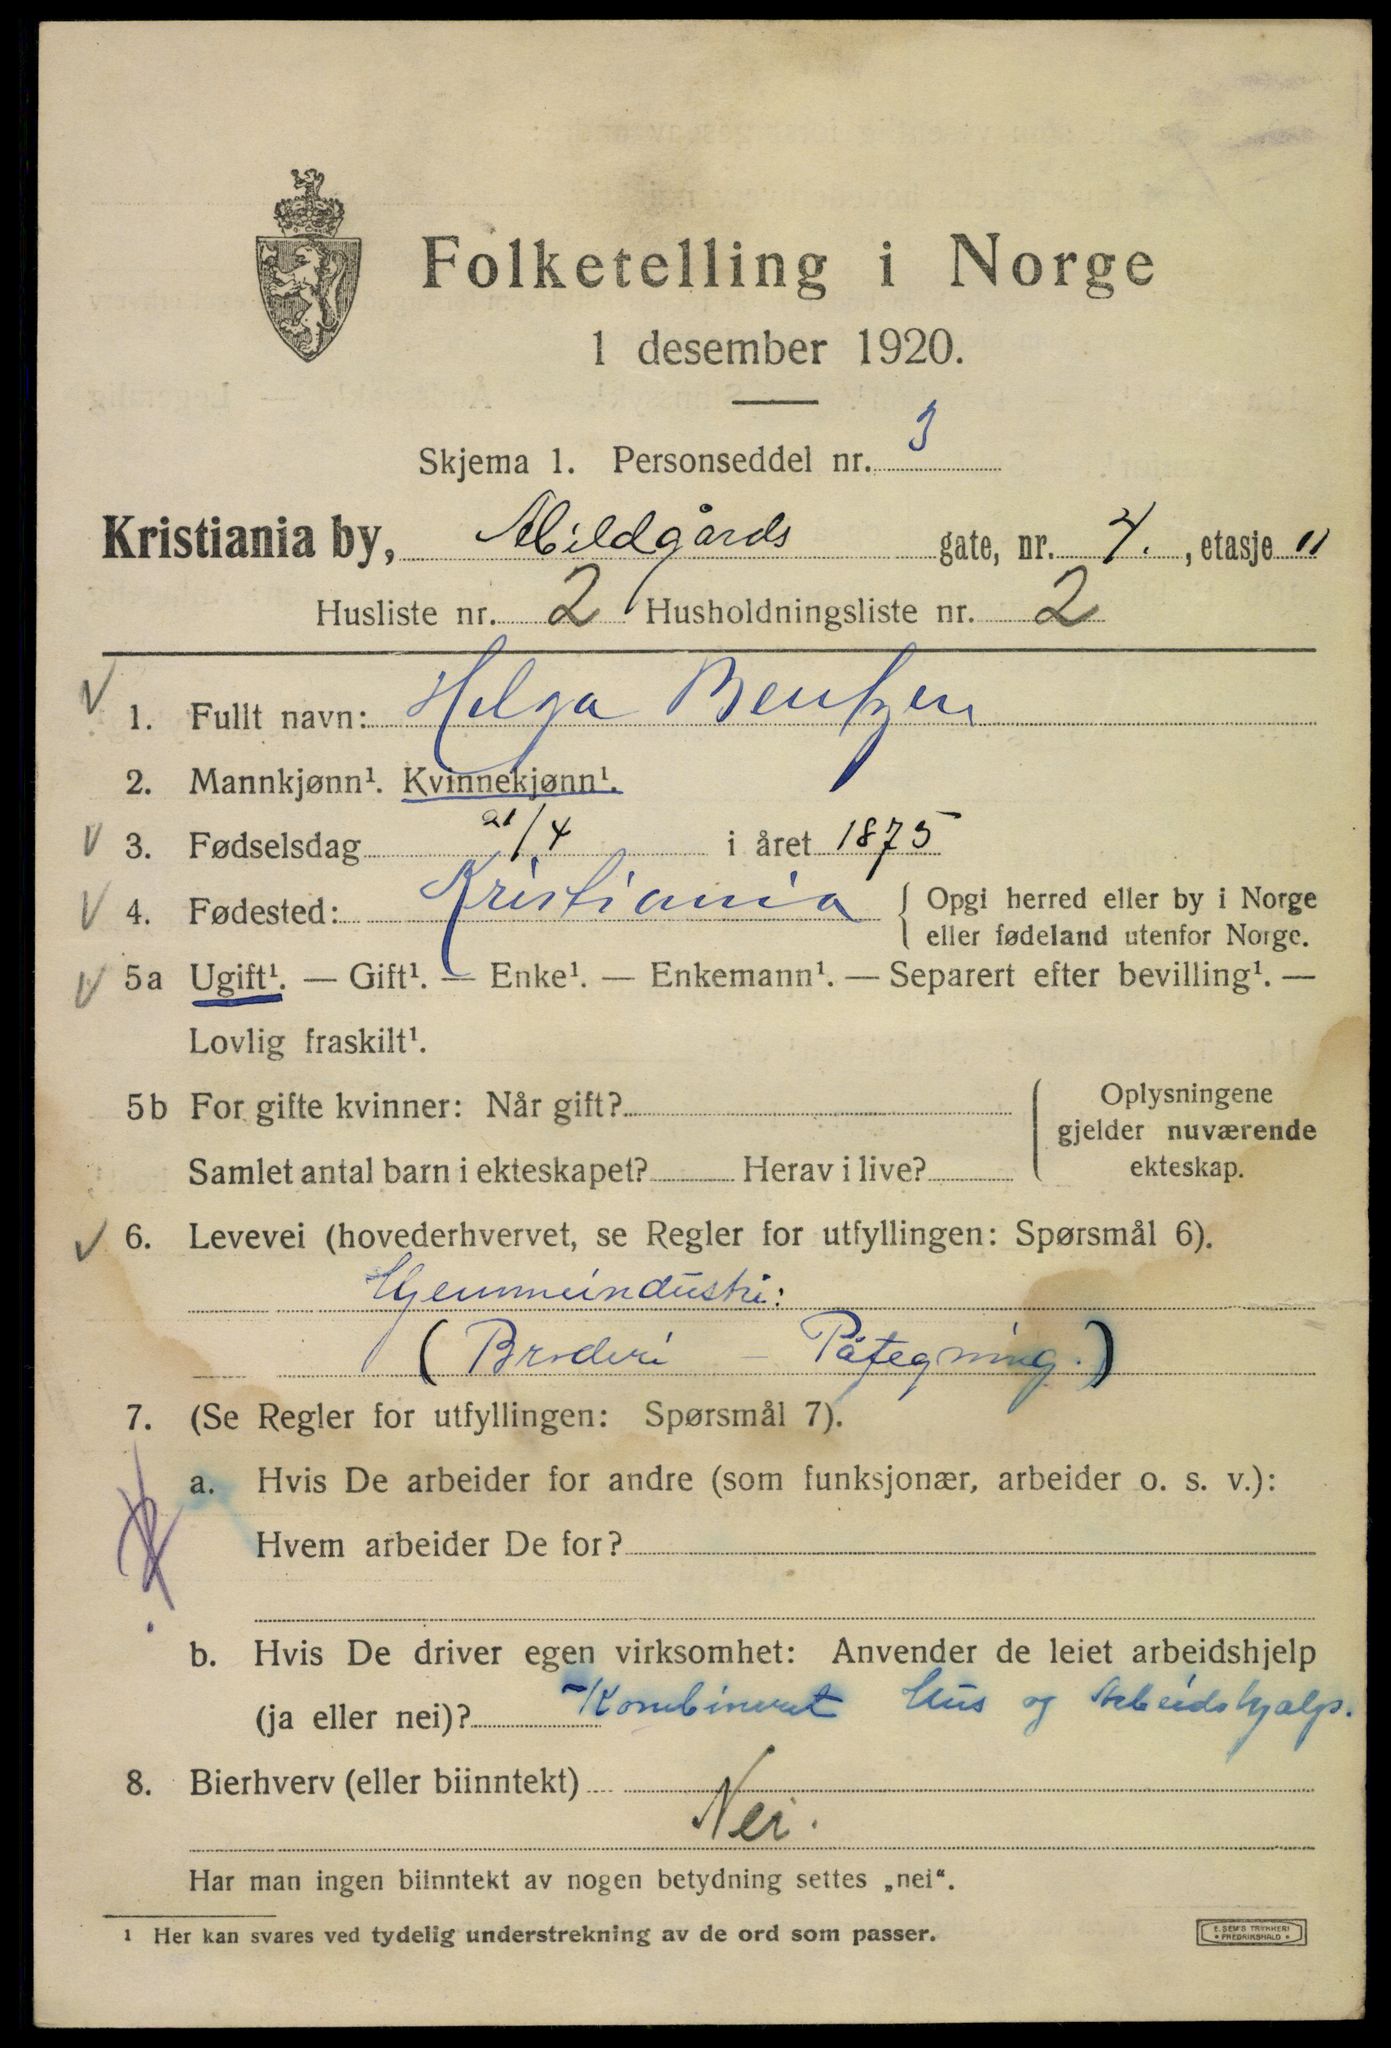 Folketelling i Norge
1 desember 1920.
Skjema 1. Personseddel nr. 3
Kristiania by, Abildgårds gate, nr. 4., etasje 11
Husliste nr. 2 Husholdningsliste nr. 2
1. Fullt navn: Helga Bentzen
2. Mannkjønn¹. Kvinnekjønn¹.
3. Fødselsdag 21/4 i året 1875
4. Fødested: Kristiania { Opgi herred eller by i Norge
eller fødeland utenfor Norge.
5a Ugift¹. — Gift¹. — Enke¹. — Enkemann¹. — Separert efter bevilling¹. —
Lovlig fraskilt¹.
5b For gifte kvinner: Når gift?
Samlet antal barn i ekteskapet? Herav i live?
Oplysningene
gjelder nuværende
ekteskap.
6. Levevei (hovederhvervet, se Regler for utfyllingen: Spørsmål 6).
Hjemmeindustri:
(Broderi — Påtegning.)
7. (Se Regler for utfyllingen: Spørsmål 7).
a. Hvis De arbeider for andre (som funksjonær, arbeider o. s. v.):
Hvem arbeider De for?
b. Hvis De driver egen virksomhet: Anvender de leiet arbeidshjelp
(ja eller nei)? Kombineret Hus og Arbeidshjælp.
8. Bierhverv (eller biinntekt)
Nei.
Har man ingen biinntekt av nogen betydning settes „nei“.
¹ Her kan svares ved tydelig understrekning av de ord som passer.
E. SEM'S TRYKKERI
• FREDRIKSHALD •